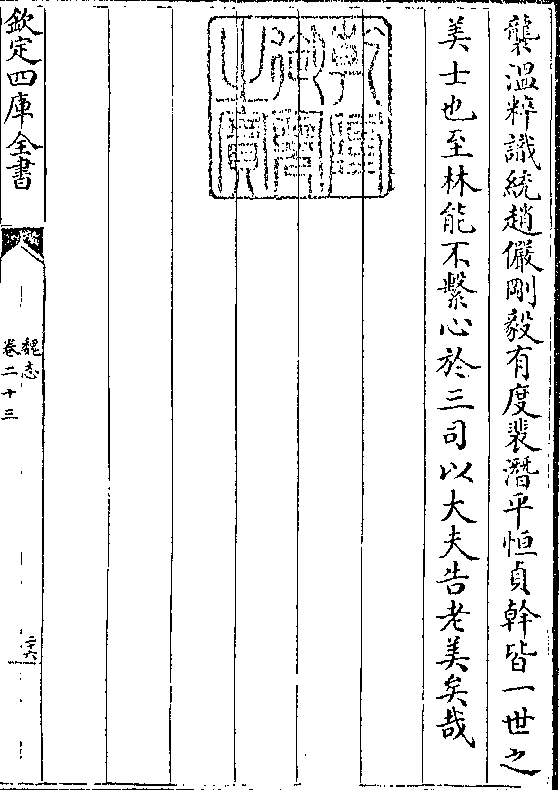 襲溫粹識統趙儼剛毅有度裴潛平恒貞幹皆一世之
美士也至林能不繫心於三司以大夫告老美矣哉
乾隆御覽之寶
欽定四庫全書
魏志
卷二十三
二六